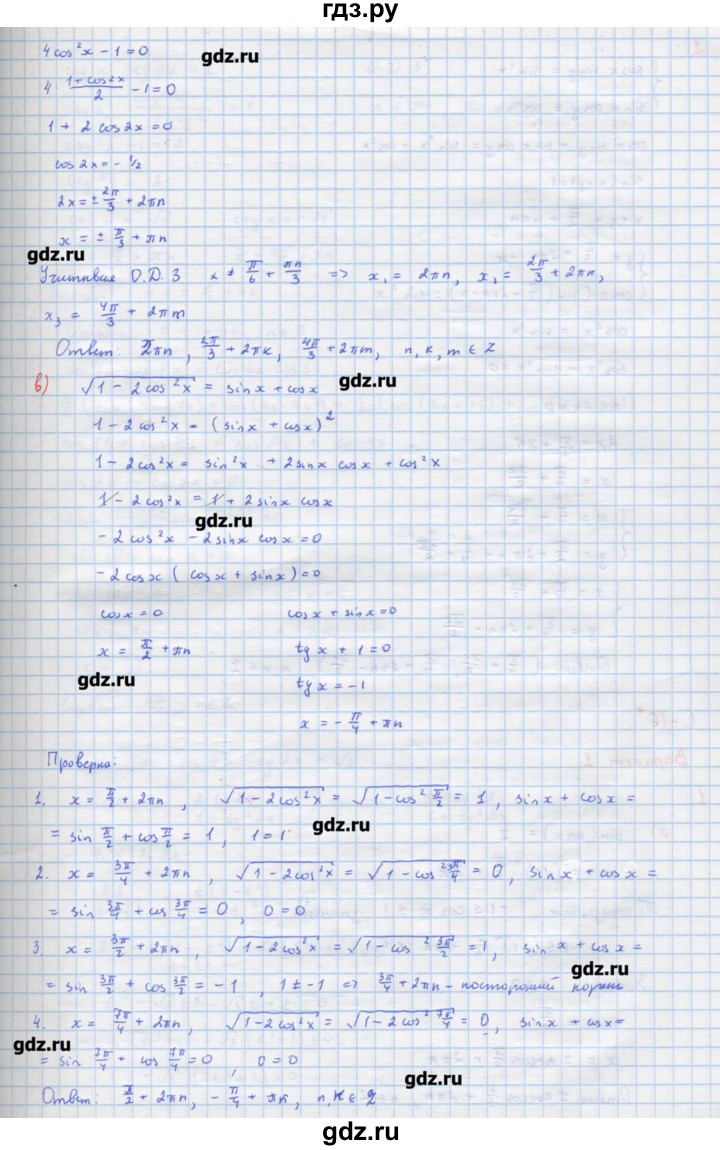 гдз.ру
4cos²x − 1 = 0
gdz.ru
4 · (1+cos2x)/2 − 1 = 0
1 + 2 cos2x = 0
cos 2x = − 1/2
2x = ± 2π/3 + 2πn
x = ± π/3 + πn
gdz.ru
Учитывая О.Д.З x ≠ π/6 + πn/3 => x₁ = 2πn, x₁ = 2π/3 + 2πк,
x₃ = 4π/3 + 2πm
Ответ: 2πn, 2π/3 + 2πк, 4π/3 + 2πm, n, к, m ∈ Z
в) √(1 − 2cos²x) = sinx + cosx
gdz.ru
1 − 2cos²x = (sinx + cosx)²
1 − 2cos²x = sin²x + 2sinx cosx + cos²x
1 − 2cos²x = 1 + 2sinx cosx
gdz.ru
− 2cos²x − 2sinx cosx = 0
− 2cosx (cosx + sinx) = 0
cosx = 0 cosx + sinx = 0
x = π/2 + πn tgx + 1 = 0
gdz.ru
tgx = −1
x = − π/4 + πn
Проверка:
1. x = π/2 + 2πn, √(1 − 2cos²x) = √(1 − cos² π/2) = 1, sinx + cosx =
gdz.ru
= sin π/2 + cos π/2 = 1, 1 = 1
2. x = 3π/4 + 2πn, √(1 − 2cos²x) = √(1 − cos² 3π/4) = 0, sinx + cosx =
= sin 3π/4 + cos 3π/4 = 0, 0 = 0
3. x = 3π/2 + 2πn, √(1 − 2cos²x) = √(1 − cos² 3π/2) = 1, sinx + cosx =
gdz.ru
= sin 3π/2 + cos 3π/2 = −1, 1 ≠ −1 => 3π/4 + 2πn − посторонний корень
4. x = 7π/4 + 2πn, √(1 − 2cos²x) = √(1 − 2cos² 7π/4) = 0, sinx + cosx =
gdz.ru
= sin 7π/4 + cos 7π/4 = 0, 0 = 0
gdz.ru
Ответ: π/2 + 2πn, − π/4 + πк, n, к ∈ Z
gdz.ru